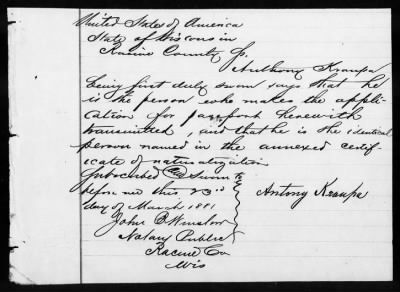 United States of America
State of Wisconsin
Racine County ss.
Anthony Kraupa
being first duly sworn says that he
is the person who makes the appli-
cation for passport herewith
transmitted, and that he is the identical
person named in the annexed certif-
icate of naturalization
Subscribed & Sworn to
before me this 23d
day of March 1881
Antony Kraupa
John B Winslow
Notary Public
Racine Co
Wis